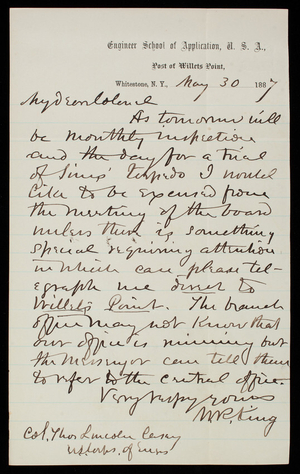 Engineer School of Application, U. S. A.,
Post of Willets Point,
Whitestone, N.Y., May 30 1887
My Dear Colonel
As tomorrow will
be monthly inspection
and the day for a trial
of Sims' torpedo I would
like to be excused from
the meeting of the board
unless there is something
special requiring attention
in which case please tel-
egraph me direct to
Willets Point. The branch
office may not know that
our office is running but
the Messenger can tell them
to refer to the central office.
Very truly yours
W.R. King
Col. Thos Lincoln Casey
Corps. of Engrs